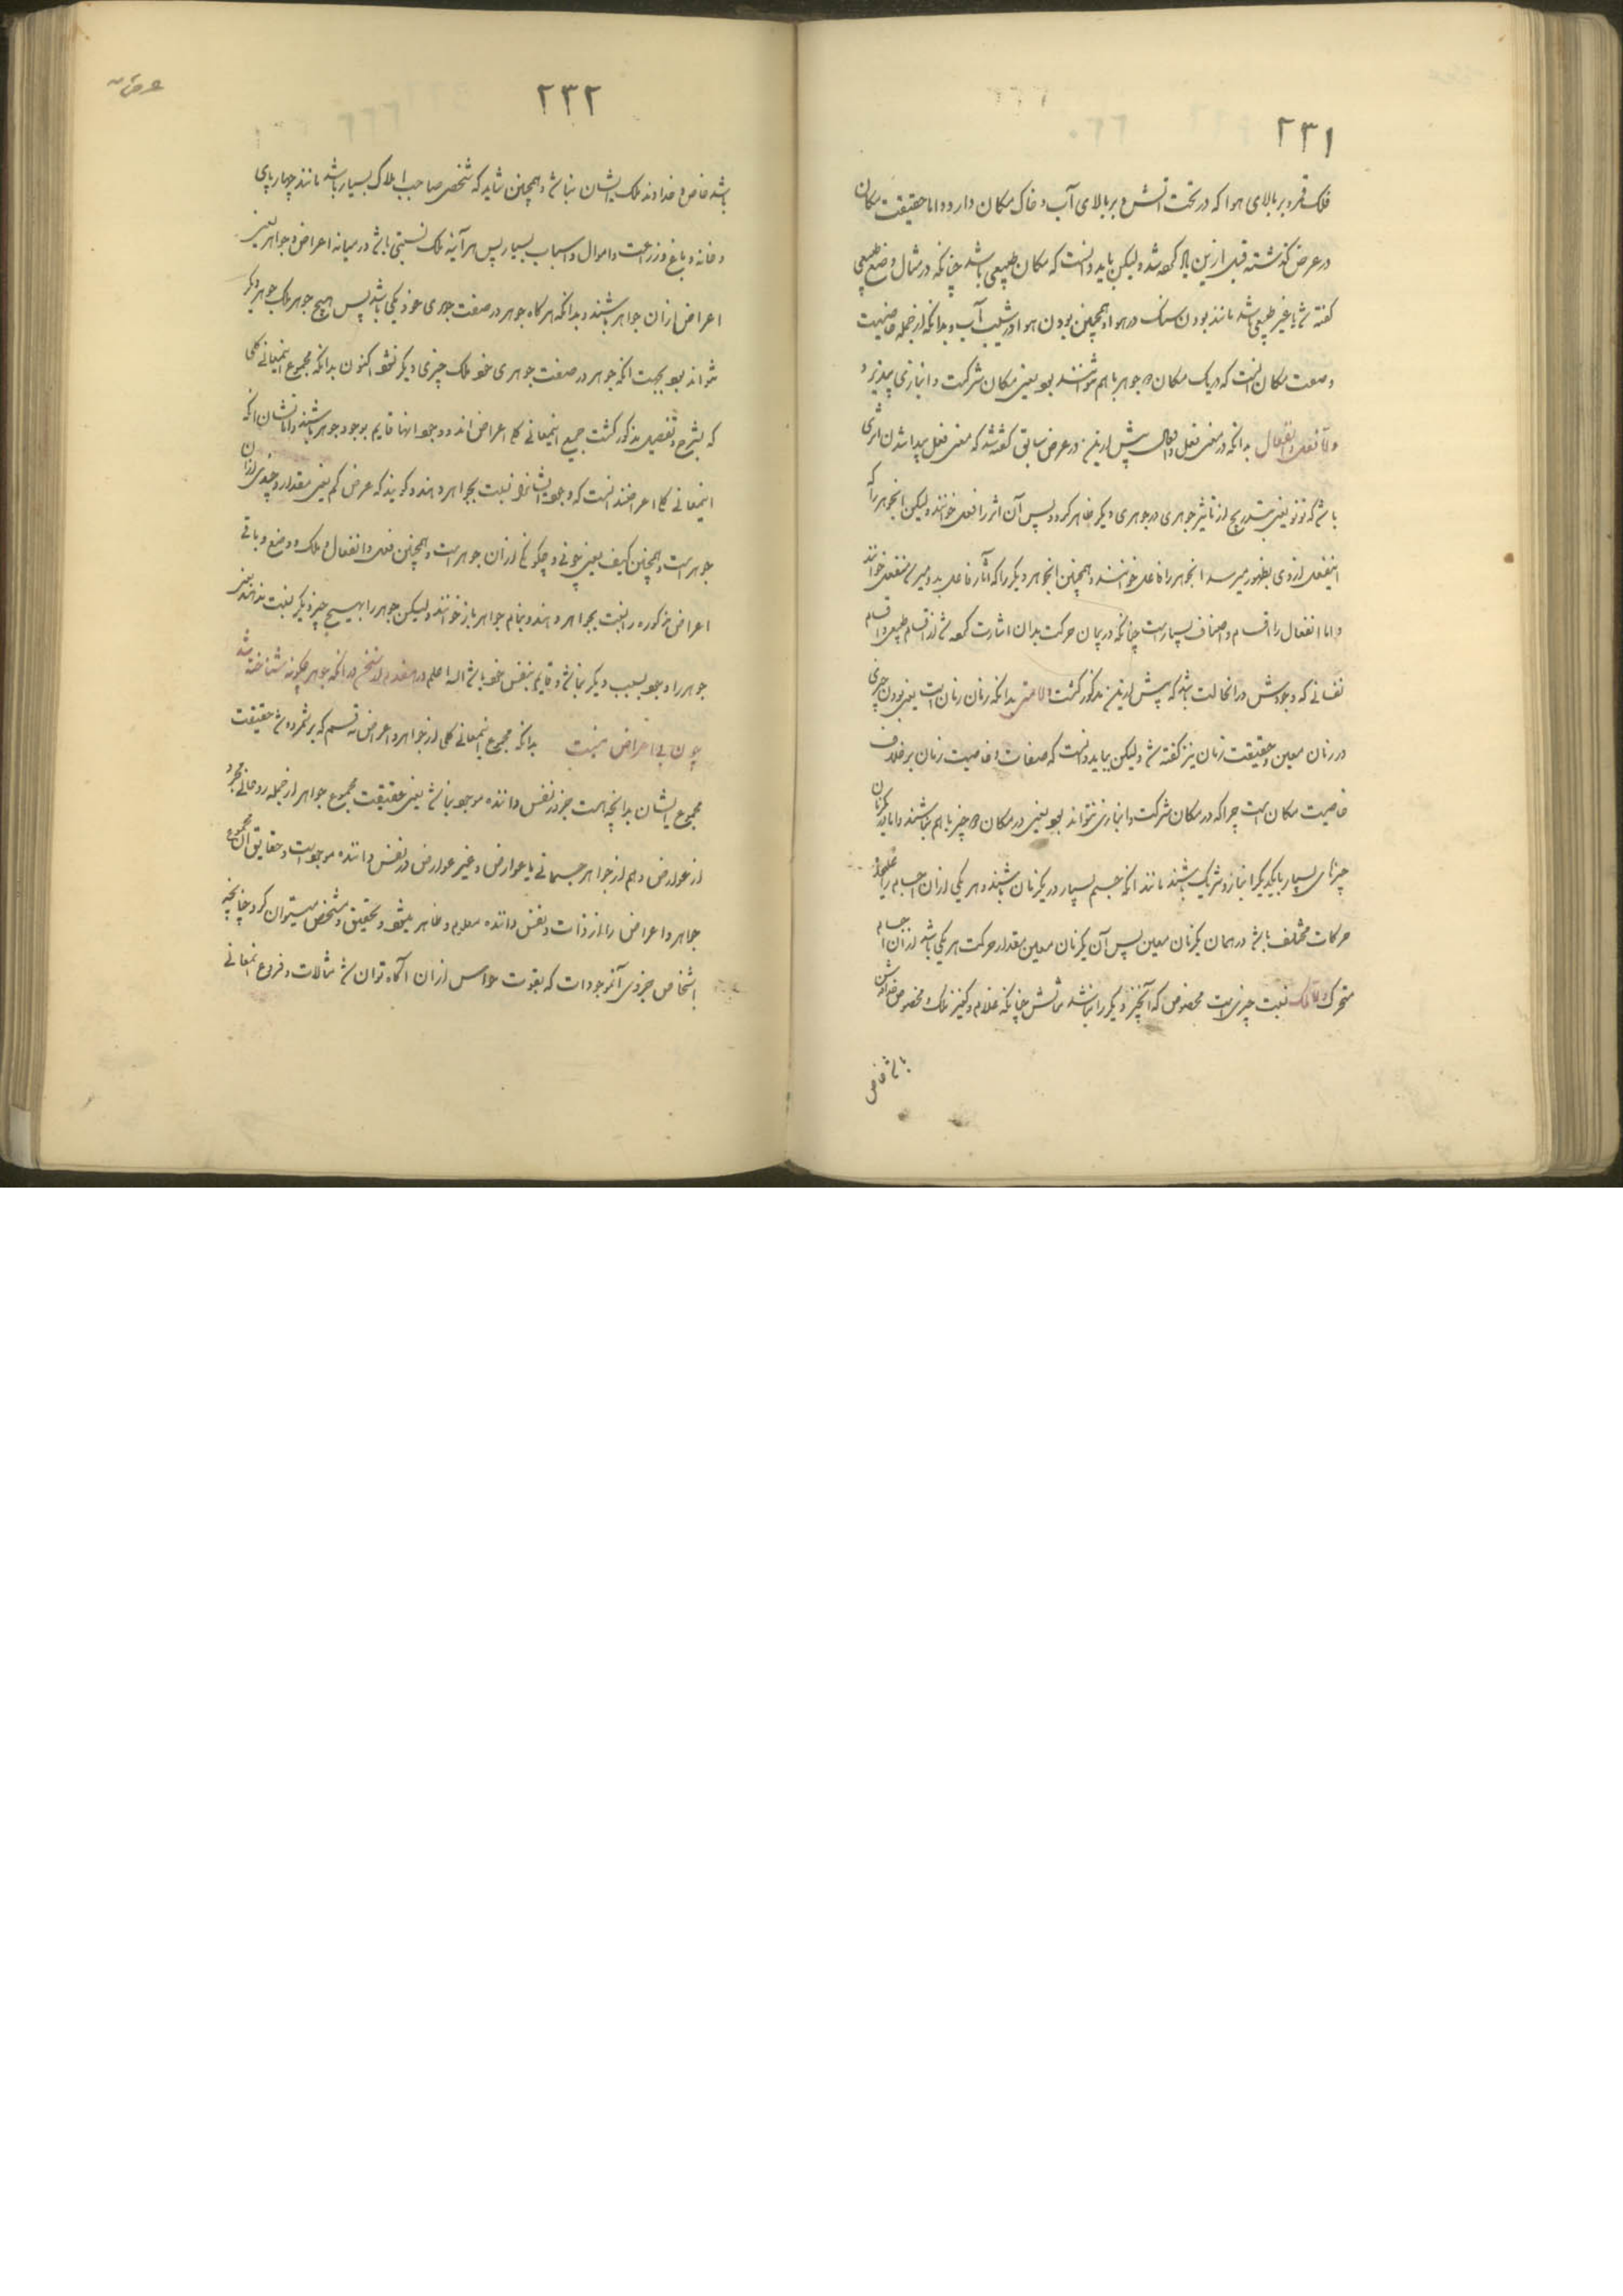 ۲۳۱
فلک قمر و بر بالای هوا که در تحت آتش و بر بالای آب و خاک مکان دارد و اما حقیقت مکان
در عرض گذشته قبل ازین شد ولیکن باید دانست که مکان طبیعی باشد چنانکه در مثال وضع طبیعی
گفته یا غیر طبیعی باشد مانند بودن سنگ در هوا و همچنین بودن هوا در شیب آب و بدانکه از جمله خاصیت
وصفت مکان آنست که در یک مکان جوهر باهم بود یعنی مکان شرکت و انبازی نپذیرد
و اما فعل و انفعال بدانکه در معنی فعل پیش ازین در عرض سابق گفته شد که معنی فعل پیدا شدن اثری
باشد که نو نو یعنی بتدریج از تاثیر جوهری در جوهری دیگر ظاهر گردد پس آن اثر را فعل خوانند ولیکن انجوهر را که
اینفعل ازوی بظهور میرسد انجوهر را فاعل خوانند و همچنین انجوهر دیگر را که آثار فاعل بدو میرسد منفعل خوانند
و اما انفعال را اقسام و اصناف بسیارست چنانکه در بیان حرکت بدان اشارت از اقسام طبیعی و اقسام
نفسانی که وجودش در انحالت باشد که پیش ازین مذکور گشت و اما متی بدانکه زمان زمان است یعنی بودن چیزی
در زمان معین و حقیقت زمان نیز گفته ولیکن بباید دانست که صفات و خاصیت زمان برخلاف
خاصیت مکان است چرا که در مکان شرکت و انبازی نتواند بود یعنی در مکان چیز باهم نباشند و اما در یکزمان
چیزهای بسیار با یکدیگر انباز و شریک باشند مانند انکه جسم بسیار در یکزمان باشند و هر یکی ازان اجسام را علیحده
حرکات مختلف باشد در همان یکزمان معین پس آن یکزمان معین مقدار حرکت هر یکی باشد ازان اجسام
متحرک و اما ملک نسبت چیزی است مخصوص که آنچیز دیگر را نباشد مثالش چنانکه غلام و کنیز ملک و مخصوص
باشد خاص
۲۳۲
عرض
باشد خاص و خداوند ملک ایشان نباشد و همچنین شاید که شخص صاحب املاک بسیار باشد مانند چهارپای
و خانه و باغ و زراعت و اموال و اسباب بسیار پس هرآینه ملک نسبتی باشد در میانه اعراض و جواهر یعنی
اعراض ازان جواهر باشند و بدانکه هرگاه جوهر در صفت جوهری خود یکی باشد پس هیچ جوهر ملک جوهر دیگر
نتواند بود بجهت انکه جوهر در صفت جوهری خود ملک چیزی دیگر نشود اکنون بدانکه مجموع اینمعانی کلی
که بشرح و تفصیل مذکور گشت جمیع اینمعانی کلی اعراض اند و وجود انها قایم بوجود جوهر باشند و اما نشان انکه
اینمعانی کلی اعراضند انست که وجود ایشانرا نسبت بجواهر دهند و گویند که عرض کم یعنی مقدار و چندی ازان
جوهر است و همچنین کیف یعنی چونی و چگونگی ازان جوهر است و همچنین فعل و انفعال و ملک و وضع و باقی
اعراض مذکوره را نسبت بجواهر دهند و بنام جواهر باز خوانند ولیکن جوهر را بهیچ چیز دیگر نسبت ندهند یعنی
جوهر را وجود بسبب دیگر نباشد و قایم بنفس خود باشد الله اعلم در انکه جوهر چگونه شناخته شد
چون بی اعراض نیست بدانکه مجموع اینمعانی کلی از جواهر و اعراض نه قسم که برشمرده شد حقیقت
مجموع ایشان بدانچه هست جز در نفس داننده موجود نباشد یعنی حقیقت مجموع جواهر از جمله روحانی مجرد
از عوارض و هم از جواهر جسمانی با عوارض و غیر عوارض در نفس داننده موجود است و حقایق آن مجموع
جواهر و اعراض را از ذات و نفس داننده معلوم و ظاهر میشود و تحقیق و مشخص میتوان کرد چنانچه
اشخاص جزوی آنموجودات که بقوت حواس ازان آگاه توان شد مثالات و فروع اینمعانی